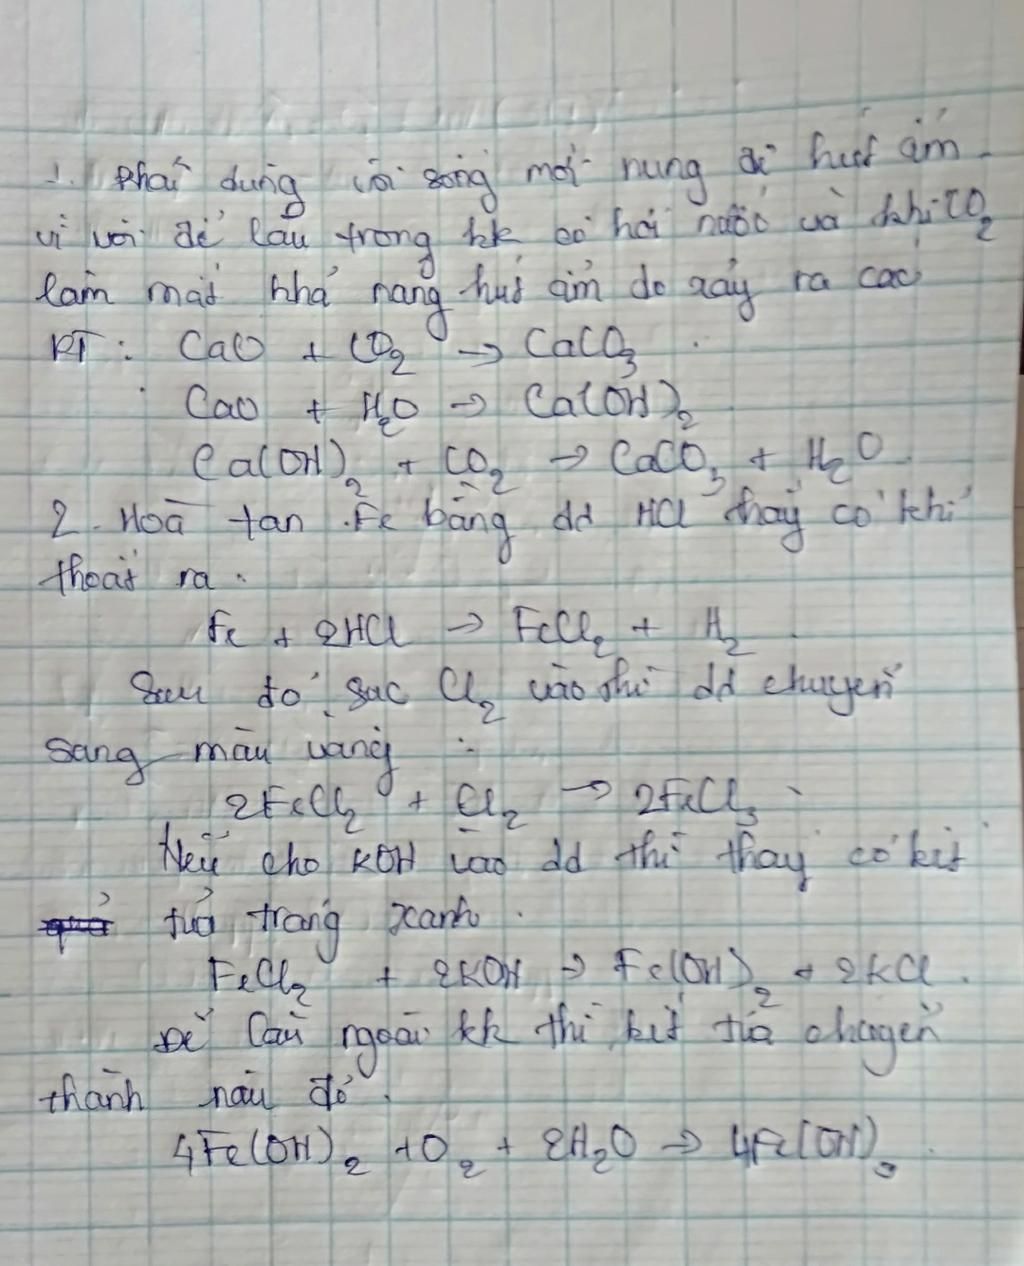 1. Phải dùng vôi sống mới nung để hút ẩm
vì vôi để lâu trong kk có hơi nước và khí CO₂
làm mất khả năng hút ẩm do xảy ra các
PT : CaO + CO₂ → CaCO₃
CaO + H₂O → Ca(OH)₂
Ca(OH)₂ + CO₂ → CaCO₃ + H₂O
2. Hoà tan Fe bằng dd HCl thấy có khí
thoát ra :
Fe + 2HCl → FeCl₂ + H₂
Sau đó sục Cl₂ vào thì dd chuyển
sang màu vàng :
2FeCl₂ + Cl₂ → 2FeCl₃
Nếu cho KOH vào dd thì thấy có kết
tủa trắng xanh.
FeCl₂ + 2KOH → Fe(OH)₂ + 2KCl.
Để lâu ngoài kk thì kết tủa chuyển
thành nâu đỏ.
4Fe(OH)₂ + O₂ + 2H₂O → 4Fe(OH)₃.